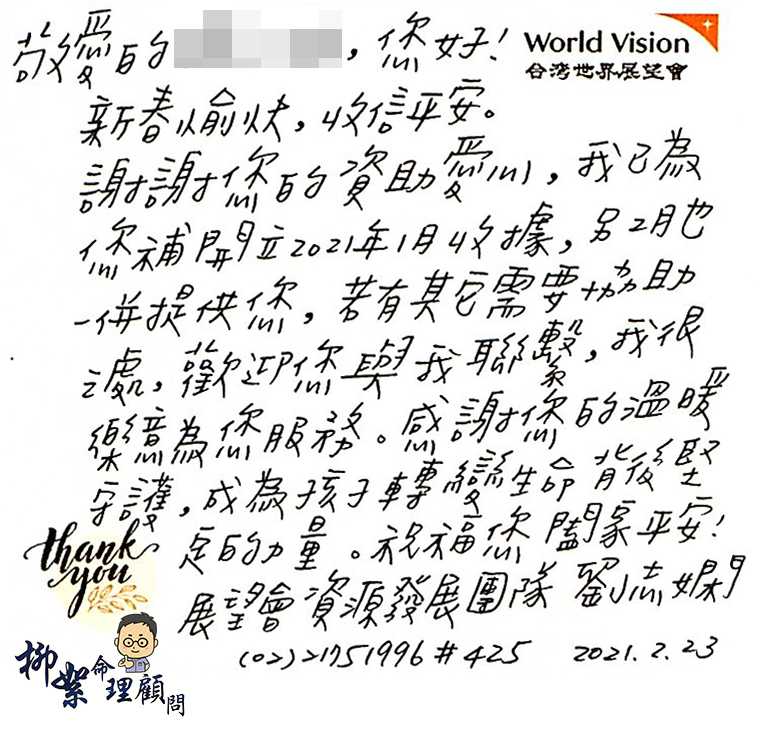 敬愛的 ，您好！
World Vision
台灣世界展望會
新春愉快，收信平安。
謝謝您的資助愛心，我已為
您補開立2021年1月收據，另2月也
一併提供您，若有其它需要協助
之處，歡迎您與我聯繫，我很
樂意為您服務。感謝您的溫暖
守護，成為孩子轉變生命背後堅
定的力量。祝福您闔家平安！
展望會資源發展團隊 劉志嫻
(02)21751996#425 2021.2.23
thank
you
柳絮命理顧問